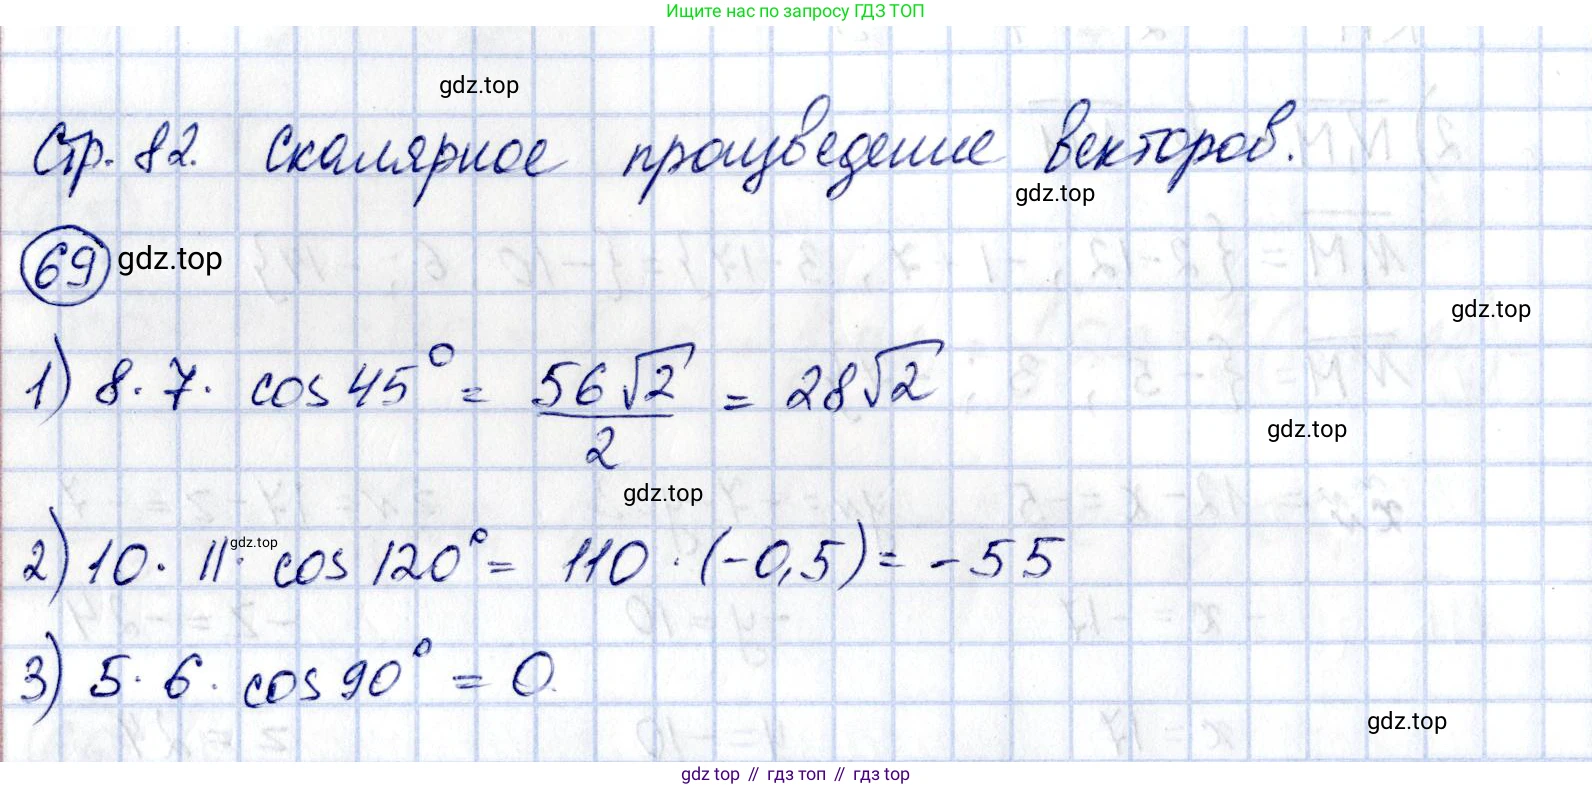 Ищите нас по запросу ГДЗ ТОП
gdz.top
Стр. 82. Скалярное произведение векторов.
gdz.top
69 gdz.top
gdz.top
1) 8 · 7 · cos 45° = 56√2/2 = 28√2
gdz.top
gdz.top
2) 10 · 11 · cos 120° = 110 · (-0,5) = -55
gdz.top
3) 5 · 6 · cos 90° = 0
gdz.top
gdz top // гдз топ // гдз top